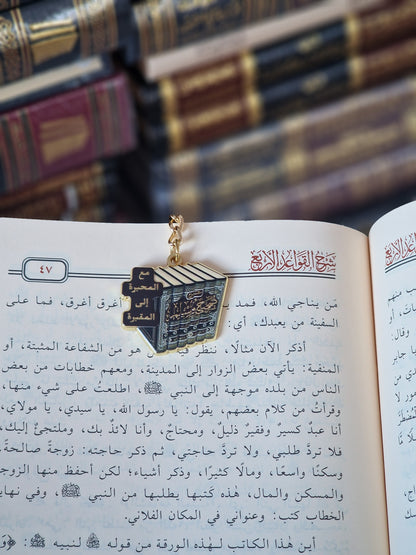 شرح القواعد الأربع
٤٧
مع
المحبرة
إلى
المقبرة
مَن يناجي الله، فمد أغرق أغرق، فما على
السفينة من يعبدك، أي:
أذكر الآن مثالًا، ننظر هو من الشفاعة المثبتة، أو
المنفية: يأتي بعضُ الزوار إلى المدينة، ومعهم خطابات من بعض
الناس من بلده موجهة إلى النبي ﷺ، اطلعتُ على شيء منها،
وقرأتُ من كلام بعضهم، يقول: يا رسول الله، يا سيدي، يا مولاي،
أنا عبدٌ كسيرٌ وفقيرٌ ذليلٌ، ومحتاجٌ، وأنا لائذٌ بك، وملتجئٌ إليك،
فلا تردَّ طلبي، ولا تردَّ حاجتي، ثم ذكر حاجته: زوجةً صالحةً،
وسكنًا واسعًا، ومالًا كثيرًا، وذكر أشياء؛ لكن أحفظ منها الزوج
والمسكن والمال، هٰذه كتبها يطلبها من النبي ﷺ، وفي نها
الخطاب كتب: وعنواني في المكان الفلاني.
أين هٰذا الكاتب لهٰذه الورقة من قوله لنبيه ﷺ: